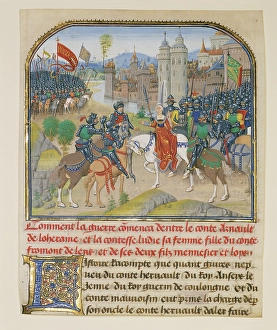 Comment la guerre comenca dentre le conte Arnault
de loheraine et la contesse ludie sa femme fille du conte
fromont de lens et de ses deux filz
Listoire racompte que quant
du conte heruault du Roy Anseys le
Jenne du Roy guerin de coulongne Et du
conte mauuoisin eut prins la charge de
son oncle le conte heruault dalet faire